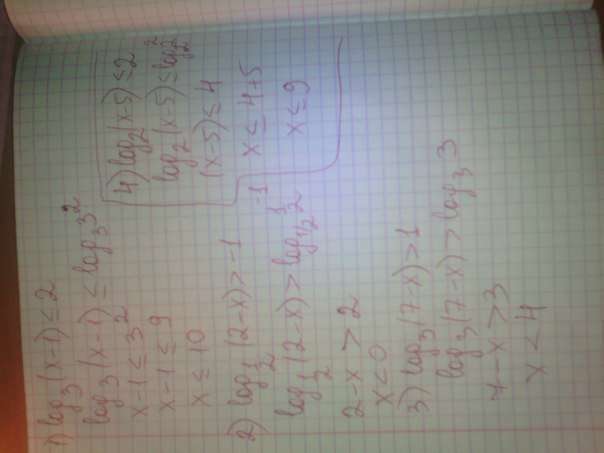 1) log₃(x-1) ≤ 2
log₃(x-1) ≤ log₃3²
x-1 ≤ 3²
x-1 ≤ 9
x ≤ 10
2) log½(2-x) > -1
log½(2-x) > log1/2 ½⁻¹
2-x > 2
x < 0
3) log₃(7-x) > 1
log₃(7-x) > log₃3
7-x > 3
x < 4
4) log₂(x-5) ≤ 2
log₂(x-5) ≤ log₂2²
(x-5) ≤ 4
x ≤ 4+5
x ≤ 9